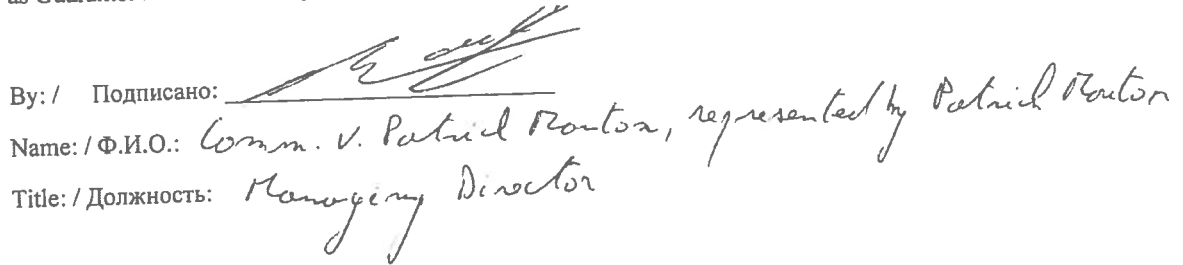 as Guarantor
By: / Подписано:
Name: / Ф.И.О.: Comm. V. Patrick Mouton, represented by Patrick Mouton
Title: / Должность: Managing Director